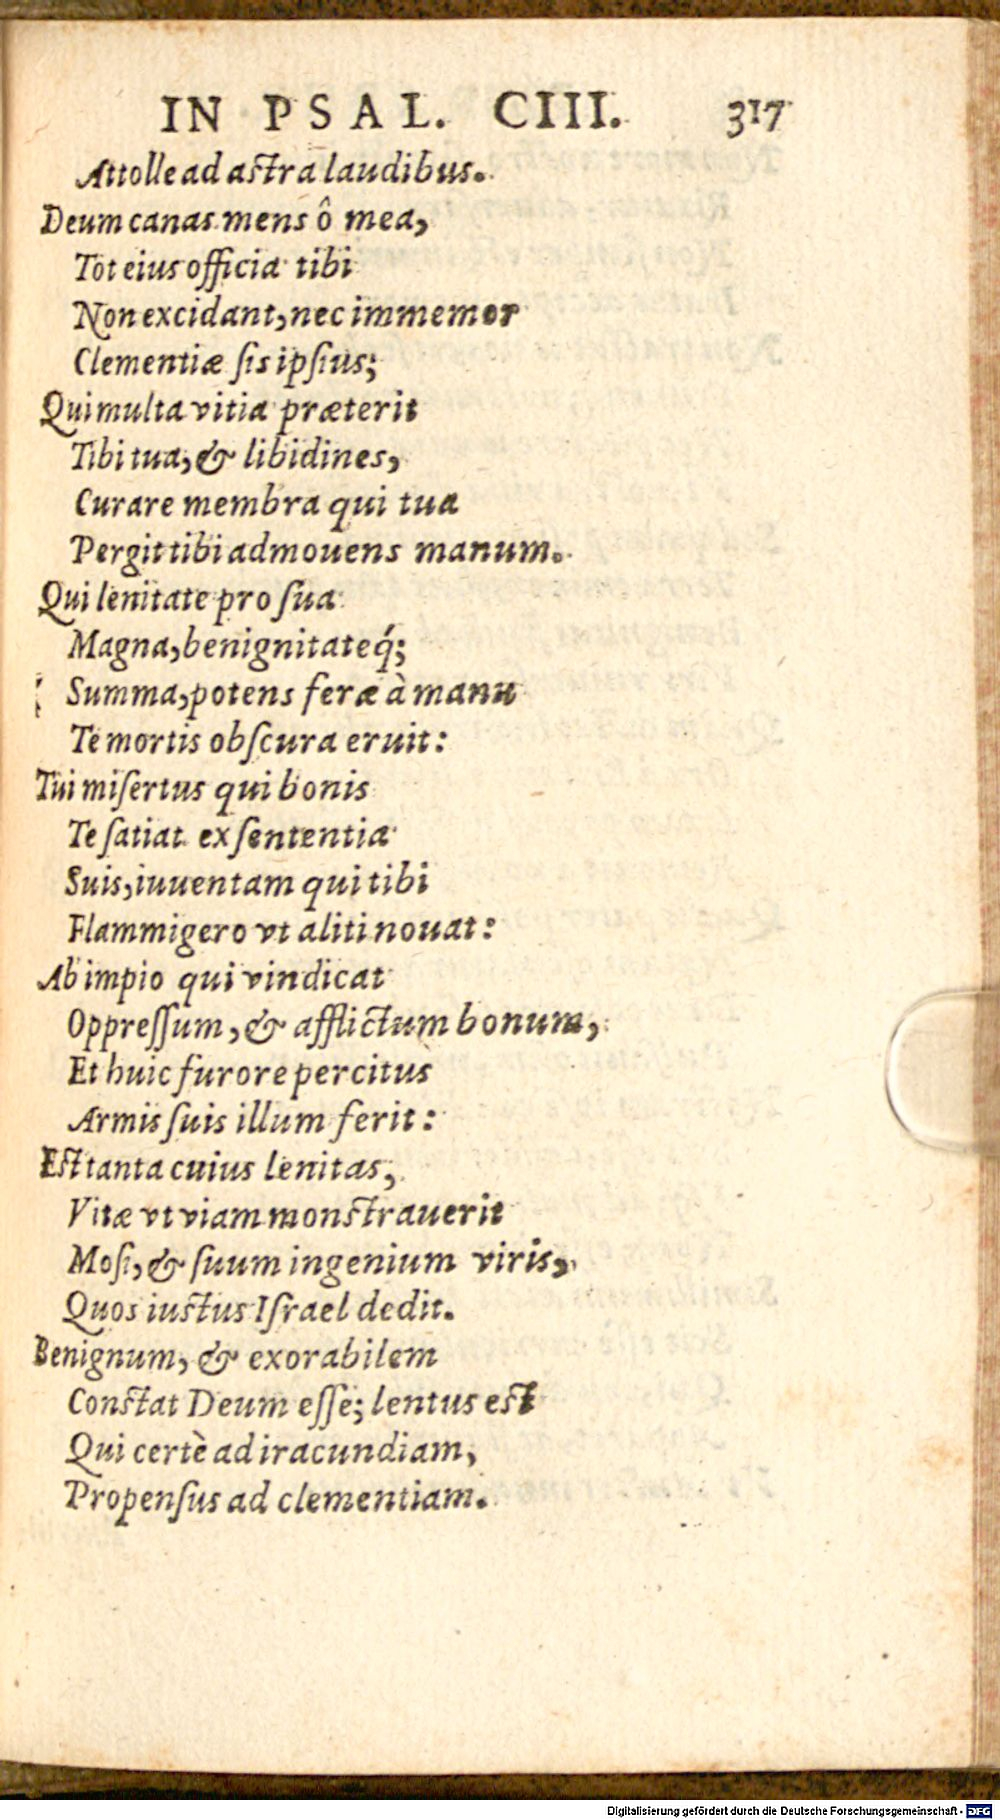 IN PSAL. CIII. 317
Attolle ad astra laudibus.
Deum canas mens ô mea,
Tot eius officia tibi
Non excidant, nec immemor
Clementiæ ſis ipſius;
Qui multa vitia præterit
Tibi tua, & libidines,
Curare membra qui tua
Pergit tibi admouens manum.
Qui lenitate pro ſua
Magna, benignitateq́;
Summa, potens feræ à manu
Te mortis obſcura eruit:
Tui miſertus qui bonis
Te ſatiat ex ſententia
Suis, iuuentam qui tibi
Flammigero vt aliti nouat:
Ab impio qui vindicat
Oppreſſum, & afflictum bonum,
Et huic furore percitus
Armis ſuis illum ferit:
Est tanta cuius lenitas,
Vitæ vt viam monstrauerit
Moſi, & ſuum ingenium viris,
Quos iustus Iſrael dedit.
Benignum, & exorabilem
Constat Deum eſſe; lentus est
Qui certè ad iracundiam,
Propenſus ad clementiam.
Digitalisierung gefördert durch die Deutsche Forschungsgemeinschaft - DFG